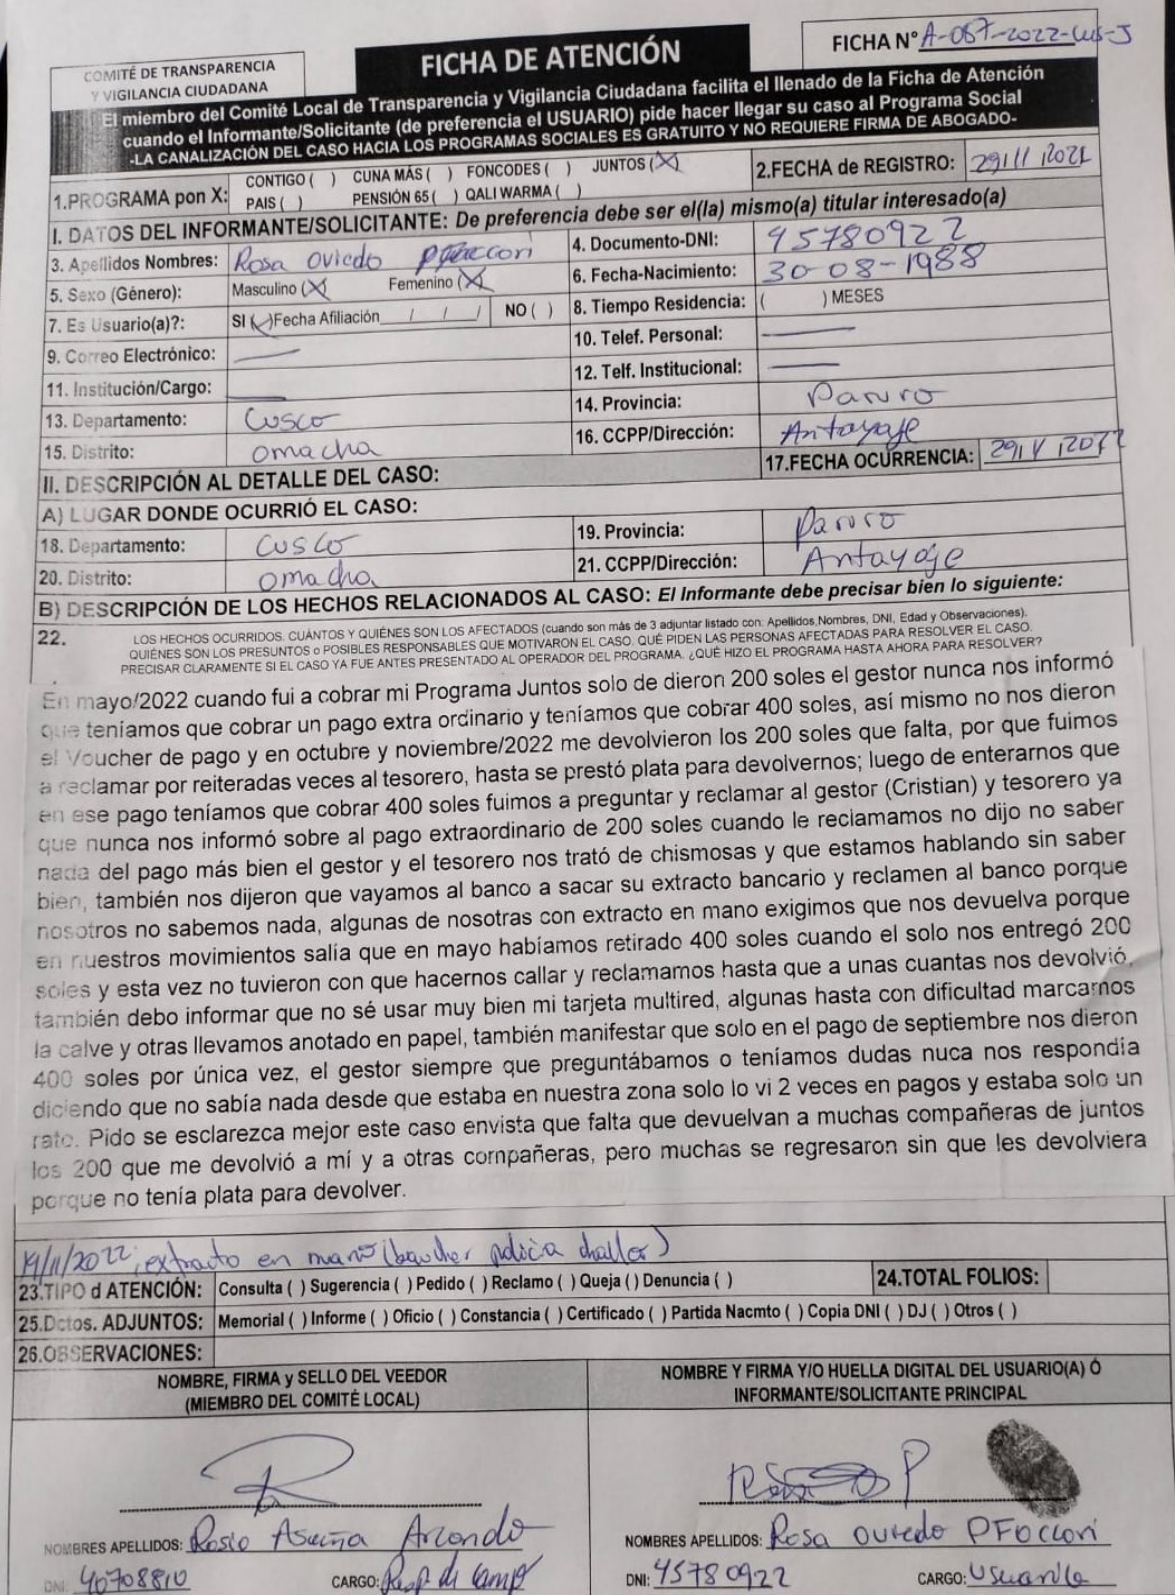 COMITÉ DE TRANSPARENCIA
Y VIGILANCIA CIUDADANA
FICHA DE ATENCIÓN
FICHA N° A-057-2022-Cus-J
El miembro del Comité Local de Transparencia y Vigilancia Ciudadana facilita el llenado de la Ficha de Atención
cuando el Informante/Solicitante (de preferencia el USUARIO) pide hacer llegar su caso al Programa Social
-LA CANALIZACIÓN DEL CASO HACIA LOS PROGRAMAS SOCIALES ES GRATUITO Y NO REQUIERE FIRMA DE ABOGADO-
1.PROGRAMA por X: CONTIGO ( ) CUNA MÁS ( ) FONCODES ( ) JUNTOS (X)
PAIS ( ) PENSIÓN 65 ( ) QALI WARMA ( )
2.FECHA de REGISTRO: 29/11/
I. DATOS DEL INFORMANTE/SOLICITANTE: De preferencia debe ser el(la) mismo(a) titular interesado(a)
3. Apellidos Nombres: Rosa Oviedo
4. Documento-DNI: 45780922
5. Sexo (Género): Masculino (X) Femenino (X)
6. Fecha-Nacimiento: 30-08-1988
7. Es Usuario(a)?: SI (X) Fecha Afiliación / / / NO ( )
8. Tiempo Residencia: ( ) MESES
9. Correo Electrónico:
10. Telef. Personal:
11. Institución/Cargo:
12. Telf. Institucional:
13. Departamento: Cusco
14. Provincia: Paruro
15. Distrito: omacha
16. CCPP/Dirección: Antayaje
17.FECHA OCURRENCIA: 29/ V /2022
II. DESCRIPCIÓN AL DETALLE DEL CASO:
A) LUGAR DONDE OCURRIÓ EL CASO:
18. Departamento: Cusco
19. Provincia: Paruro
20. Distrito: omacha
21. CCPP/Dirección: Antayaje
B) DESCRIPCIÓN DE LOS HECHOS RELACIONADOS AL CASO: El Informante debe precisar bien lo siguiente:
22. LOS HECHOS OCURRIDOS. CUÁNTOS Y QUIÉNES SON LOS AFECTADOS (cuando son más de 3 adjuntar listado con: Apellidos,Nombres, DNI, Edad y Observaciones).
QUIÉNES SON LOS PRESUNTOS o POSIBLES RESPONSABLES QUE MOTIVARON EL CASO. QUÉ PIDEN LAS PERSONAS AFECTADAS PARA RESOLVER EL CASO.
PRECISAR CLARAMENTE SI EL CASO YA FUE ANTES PRESENTADO AL OPERADOR DEL PROGRAMA. ¿QUÉ HIZO EL PROGRAMA HASTA AHORA PARA RESOLVER?
En mayo/2022 cuando fui a cobrar mi Programa Juntos solo de dieron 200 soles el gestor nunca nos informó
que teníamos que cobrar un pago extra ordinario y teníamos que cobrar 400 soles, así mismo no nos dieron
el Voucher de pago y en octubre y noviembre/2022 me devolvieron los 200 soles que falta, por que fuimos
a reclamar por reiteradas veces al tesorero, hasta se prestó plata para devolvernos; luego de enterarnos que
en ese pago teníamos que cobrar 400 soles fuimos a preguntar y reclamar al gestor (Cristian) y tesorero ya
que nunca nos informó sobre al pago extraordinario de 200 soles cuando le reclamamos no dijo no saber
nada del pago más bien el gestor y el tesorero nos trató de chismosas y que estamos hablando sin saber
bien, también nos dijeron que vayamos al banco a sacar su extracto bancario y reclamen al banco porque
nosotros no sabemos nada, algunas de nosotras con extracto en mano exigimos que nos devuelva porque
en nuestros movimientos salía que en mayo habíamos retirado 400 soles cuando el solo nos entregó 200
soles y esta vez no tuvieron con que hacernos callar y reclamamos hasta que a unas cuantas nos devolvió,
también debo informar que no sé usar muy bien mi tarjeta multired, algunas hasta con dificultad marcamos
la calve y otras llevamos anotado en papel, también manifestar que solo en el pago de septiembre nos dieron
400 soles por única vez, el gestor siempre que preguntábamos o teníamos dudas nuca nos respondía
diciendo que no sabía nada desde que estaba en nuestra zona solo lo vi 2 veces en pagos y estaba solo un
rato. Pido se esclarezca mejor este caso envista que falta que devuelvan a muchas compañeras de juntos
los 200 que me devolvió a mí y a otras compañeras, pero muchas se regresaron sin que les devolviera
porque no tenía plata para devolver.
19/11/2022; extracto en mano (baucher policia
23.TIPO d ATENCIÓN: Consulta ( ) Sugerencia ( ) Pedido ( ) Reclamo ( ) Queja ( ) Denuncia ( )
24.TOTAL FOLIOS:
25.Dctos. ADJUNTOS: Memorial ( ) Informe ( ) Oficio ( ) Constancia ( ) Certificado ( ) Partida Nacmto ( ) Copia DNI ( ) DJ ( ) Otros ( )
26.OBSERVACIONES:
NOMBRE, FIRMA y SELLO DEL VEEDOR
(MIEMBRO DEL COMITÉ LOCAL)
NOMBRE Y FIRMA Y/O HUELLA DIGITAL DEL USUARIO(A) Ó
INFORMANTE/SOLICITANTE PRINCIPAL
NOMBRES APELLIDOS: Rosio
DNI: 40708810 CARGO: Resp de camp
NOMBRES APELLIDOS: Rosa Oviedo PFoccori
DNI: 45780922 CARGO: Usuaria